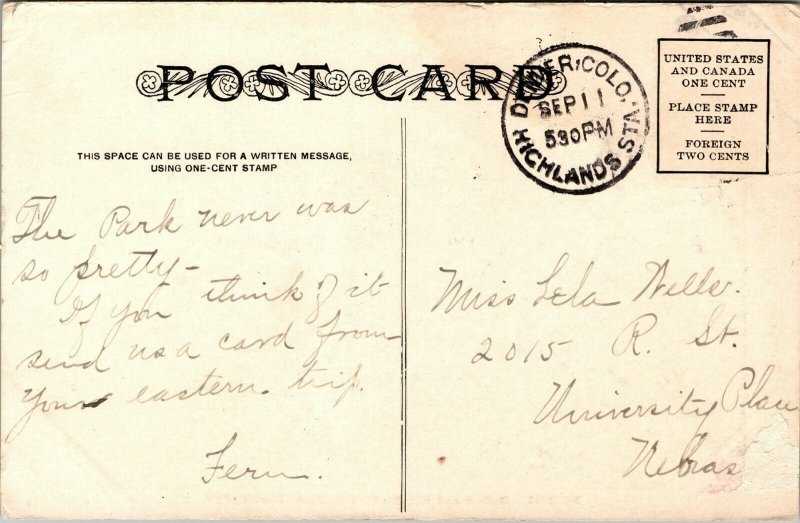 POST CARD
DENVER, COLO.
SEP 11
530 PM
HIGHLANDS STA.
UNITED STATES
AND CANADA
ONE CENT
PLACE STAMP
HERE
FOREIGN
TWO CENTS
THIS SPACE CAN BE USED FOR A WRITTEN MESSAGE,
USING ONE-CENT STAMP
The Park never was
so pretty-
If you think of it
send us a card from
your eastern trip.
Fern.
Miss Lela Wells.
2015 R. St.
University Place
Nebras